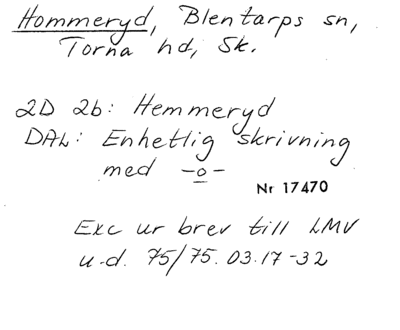 Hommeryd, Blentarps sn,
Torna hd, Sk.
2D 2b: Hemmeryd
DAL: Enhetlig skrivning
med -o-
Nr 17470
Exc ur brev till LMV
u.d. 75/75.03.17-32